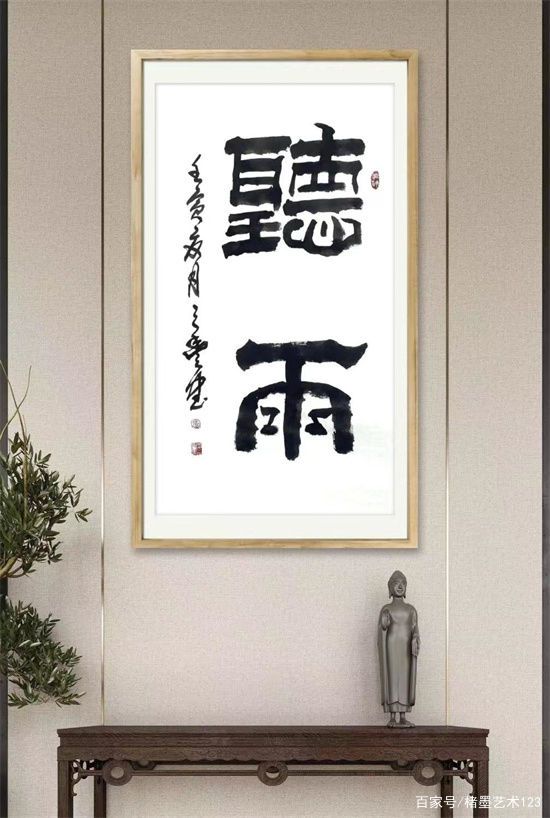 聽雨
壬寅夏月
百家号/楮墨艺术123